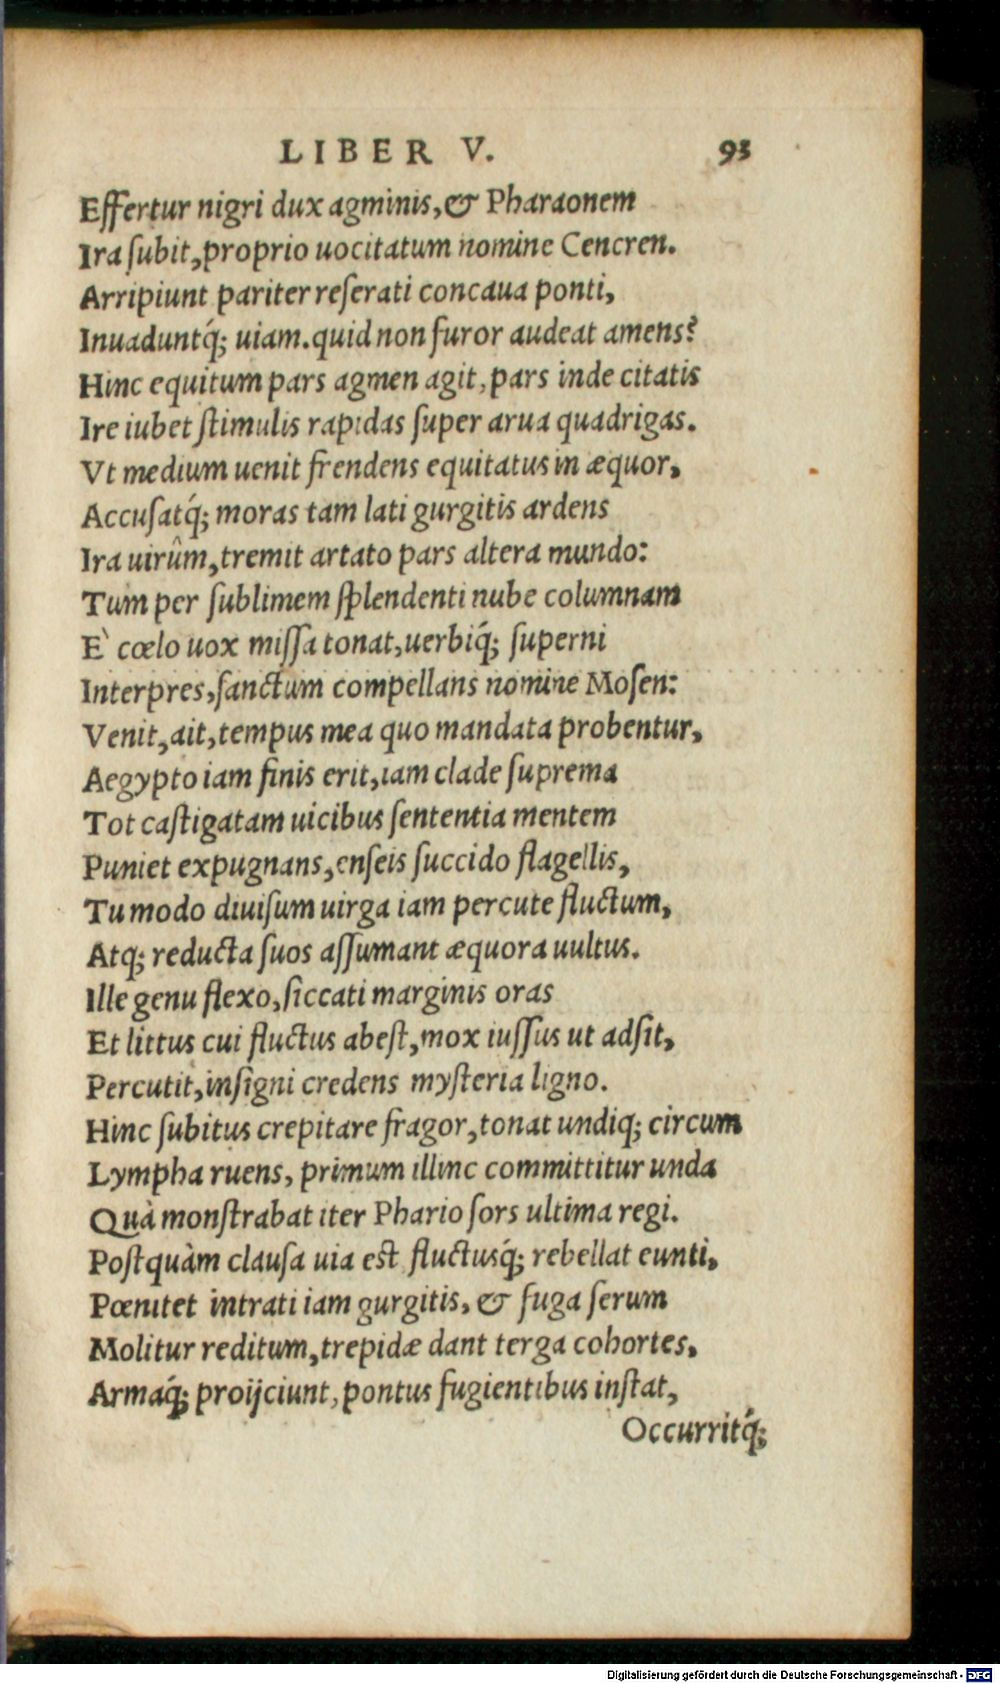 LIBER V. 93
Effertur nigri dux agminis, & Pharaonem
Ira subit, proprio uocitatum nomine Cencren.
Arripiunt pariter reserati concaua ponti,
Inuaduntq́; uiam. quid non furor audeat amens?
Hinc equitum pars agmen agit, pars inde citatis
Ire iubet stimulis rapidas super arua quadrigas.
Vt medium uenit frendens equitatus in æquor,
Accusatq́; moras tam lati gurgitis ardens
Ira uirûm, tremit artato pars altera mundo:
Tum per sublimem splendenti nube columnam
E` cœlo uox missa tonat, uerbiq́; superni
Interpres, sanctum compellans nomine Mosen:
Venit, ait, tempus mea quo mandata probentur,
Aegypto iam finis erit, iam clade suprema
Tot castigatam uicibus sententia mentem
Puniet expugnans, enseis succido flagellis,
Tu modo diuisum uirga iam percute fluctum,
Atq; reducta suos assumant æquora uultus.
Ille genu flexo, siccati marginis oras
Et littus cui fluctus abest, mox iussus ut adsit,
Percutit, insigni credens mysteria ligno.
Hinc subitus crepitare fragor, tonat undiq; circum
Lympha ruens, primum illinc committitur unda
Quà monstrabat iter Phario sors ultima regi.
Postquàm clausa uia est fluctusq́; rebellat eunti,
Pœnitet intrati iam gurgitis, & fuga serum
Molitur reditum, trepidæ dant terga cohortes,
Armaq́; proijciunt, pontus fugientibus instat,
Occurritq́;
Digitalisierung gefördert durch die Deutsche Forschungsgemeinschaft - DFG